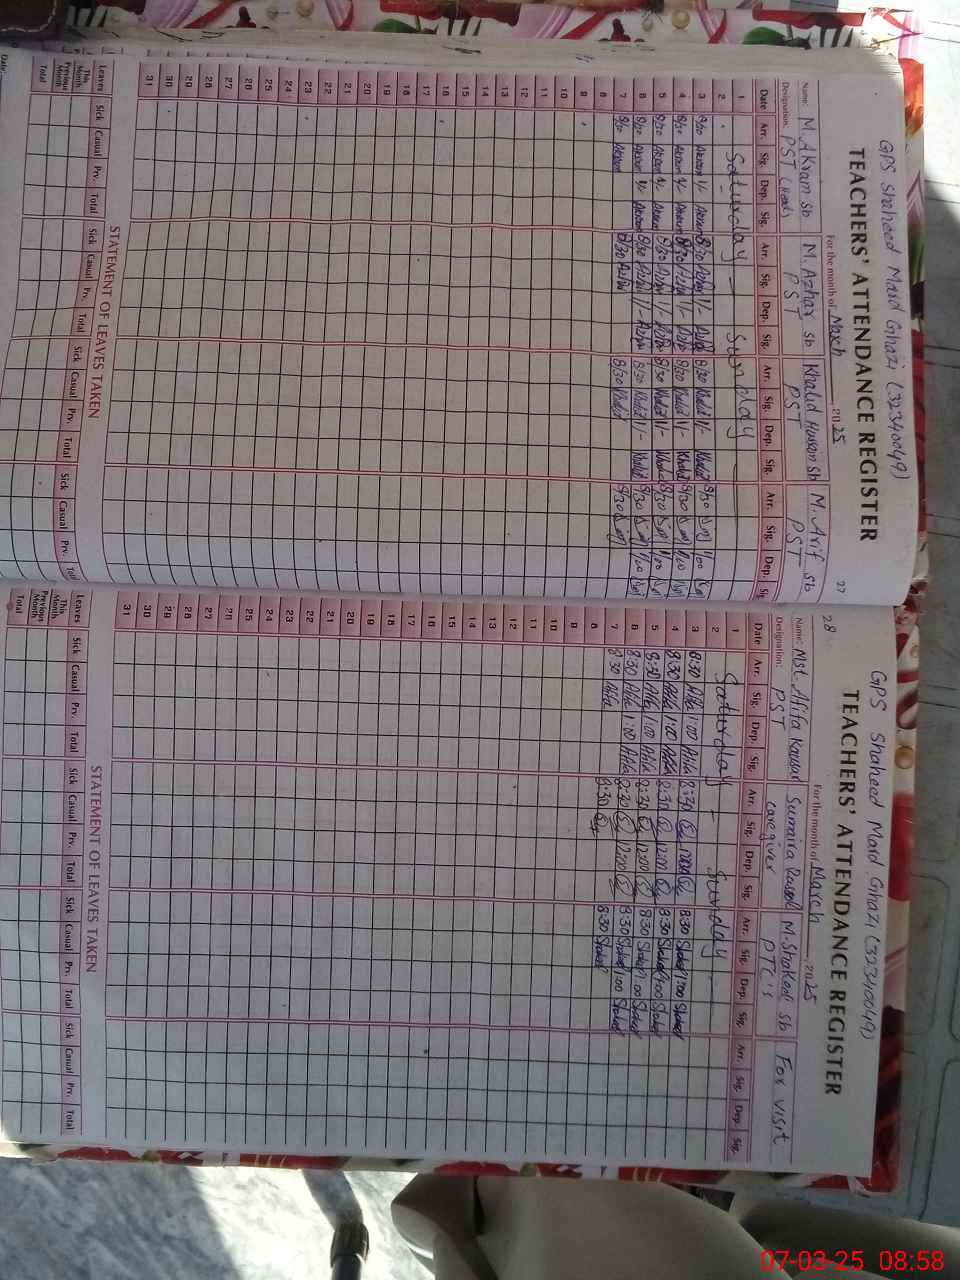 GPS Shaheed Mard Ghazi (32340049)
TEACHERS' ATTENDANCE REGISTER
For the month of March, 2025
27
Name: M. Akram Sb M. Azhar Sb Khalid Hussan Sb M. Arif Sb
Designation: PST (Head) PST PST PST
Date Arr. Sig. Dep. Sig. Arr. Sig. Dep. Sig. Arr. Sig. Dep. Sig. Arr. Sig. Dep.
1 Saturday - Sunday
2
3 8/30 Akram 1/- Akram 8/30 Azhar 1/- 8/30 Khalid 1/- Khalid 8/30 1/00
4 8/30 Akram 1/- Akram 8/30 Azhar 1/- 8/30 Khalid 1/- Khalid 8/30 1/00
5 8/30 Akram 1/- Akram 8/30 Azhar 1/- 8/30 Khalid 1/- Khalid 8/30 1/00
6 8/30 Akram 1/- Akram 8/30 Azhar 1/- Azhar 8/30 Khalid 1/- Khalid 8/30 1/00
7 8/30 Akram 8/30 Azhar 8/30 Khalid 8/30
8
9
10
11
12
13
14
15
16
17
18
19
20
21
22
23
24
25
26
27
28
29
30
31
STATEMENT OF LEAVES TAKEN
Leaves Sick Casual Prv. Total Sick Casual Prv. Total Sick Casual Prv. Total Sick Casual Prv.
This Month
Previous Month
Total
Date:
28
GPS Shaheed Mard Ghazi (32340049)
TEACHERS' ATTENDANCE REGISTER
For the month of March, 2025
Name: Mst. Afifa Kausar Sumaira Rasool M. Shakeel Sb For visit
Designation: PST caregiver PTC's
Date Arr. Sig. Dep. Sig. Arr. Sig. Dep. Sig. Arr. Sig. Dep. Sig. Arr. Sig. Dep. Sig.
1 Saturday - Sunday
2
3 8:30 Afifa 1:00 Afifa 8:30 12:00 8:30 Shakeel 1:00 Shakeel
4 8:30 Afifa 1:00 Afifa 8:30 12:00 8:30 Shakeel 1:00 Shakeel
5 8:30 Afifa 1:00 Afifa 8:30 12:00 8:30 Shakeel 1:00 Shakeel
6 8:30 Afifa 1:00 Afifa 8:30 12:00 8:30 Shakeel 1:00 Shakeel
7 8:30 Afifa 8:30 8:30 Shakeel
8
9
10
11
12
13
14
15
16
17
18
19
20
21
22
23
24
25
26
27
28
29
30
31
STATEMENT OF LEAVES TAKEN
Leaves Sick Casual Prv. Total Sick Casual Prv. Total Sick Casual Prv. Total Sick Casual Prv. Total
This Month
Previous Month
Total
07-03-25 08:58